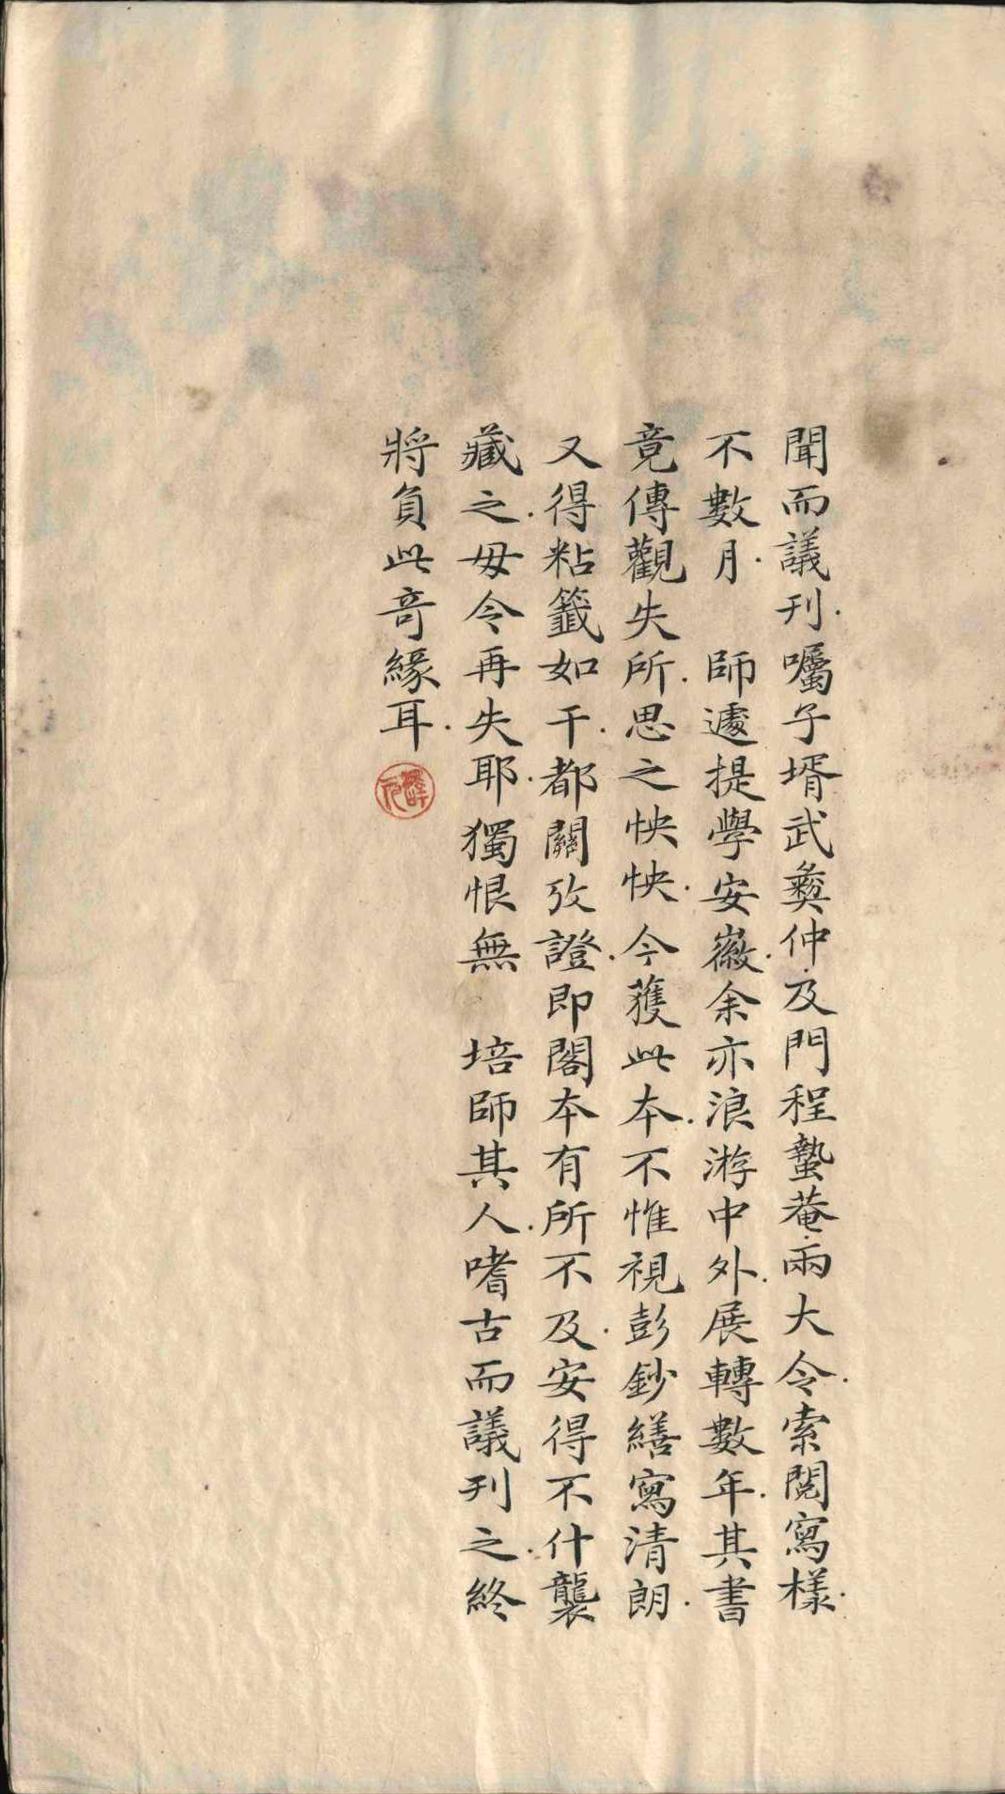 聞而議刊.囑子壻武彜仲.及門程蟄菴.兩大令.索閱寫樣.
不數月.　師遽提學安徽.余亦浪游中外.展轉數年.其書
竟傳觀失所.思之怏怏.今獲此本.不惟視彭鈔繕寫清朗.
又得粘籤如干.都關攷證.即閣本有所不及.安得不什襲
藏之.毋令再失耶.獨恨無　培師其人.嗜古而議刊之.終
將負此奇緣耳.